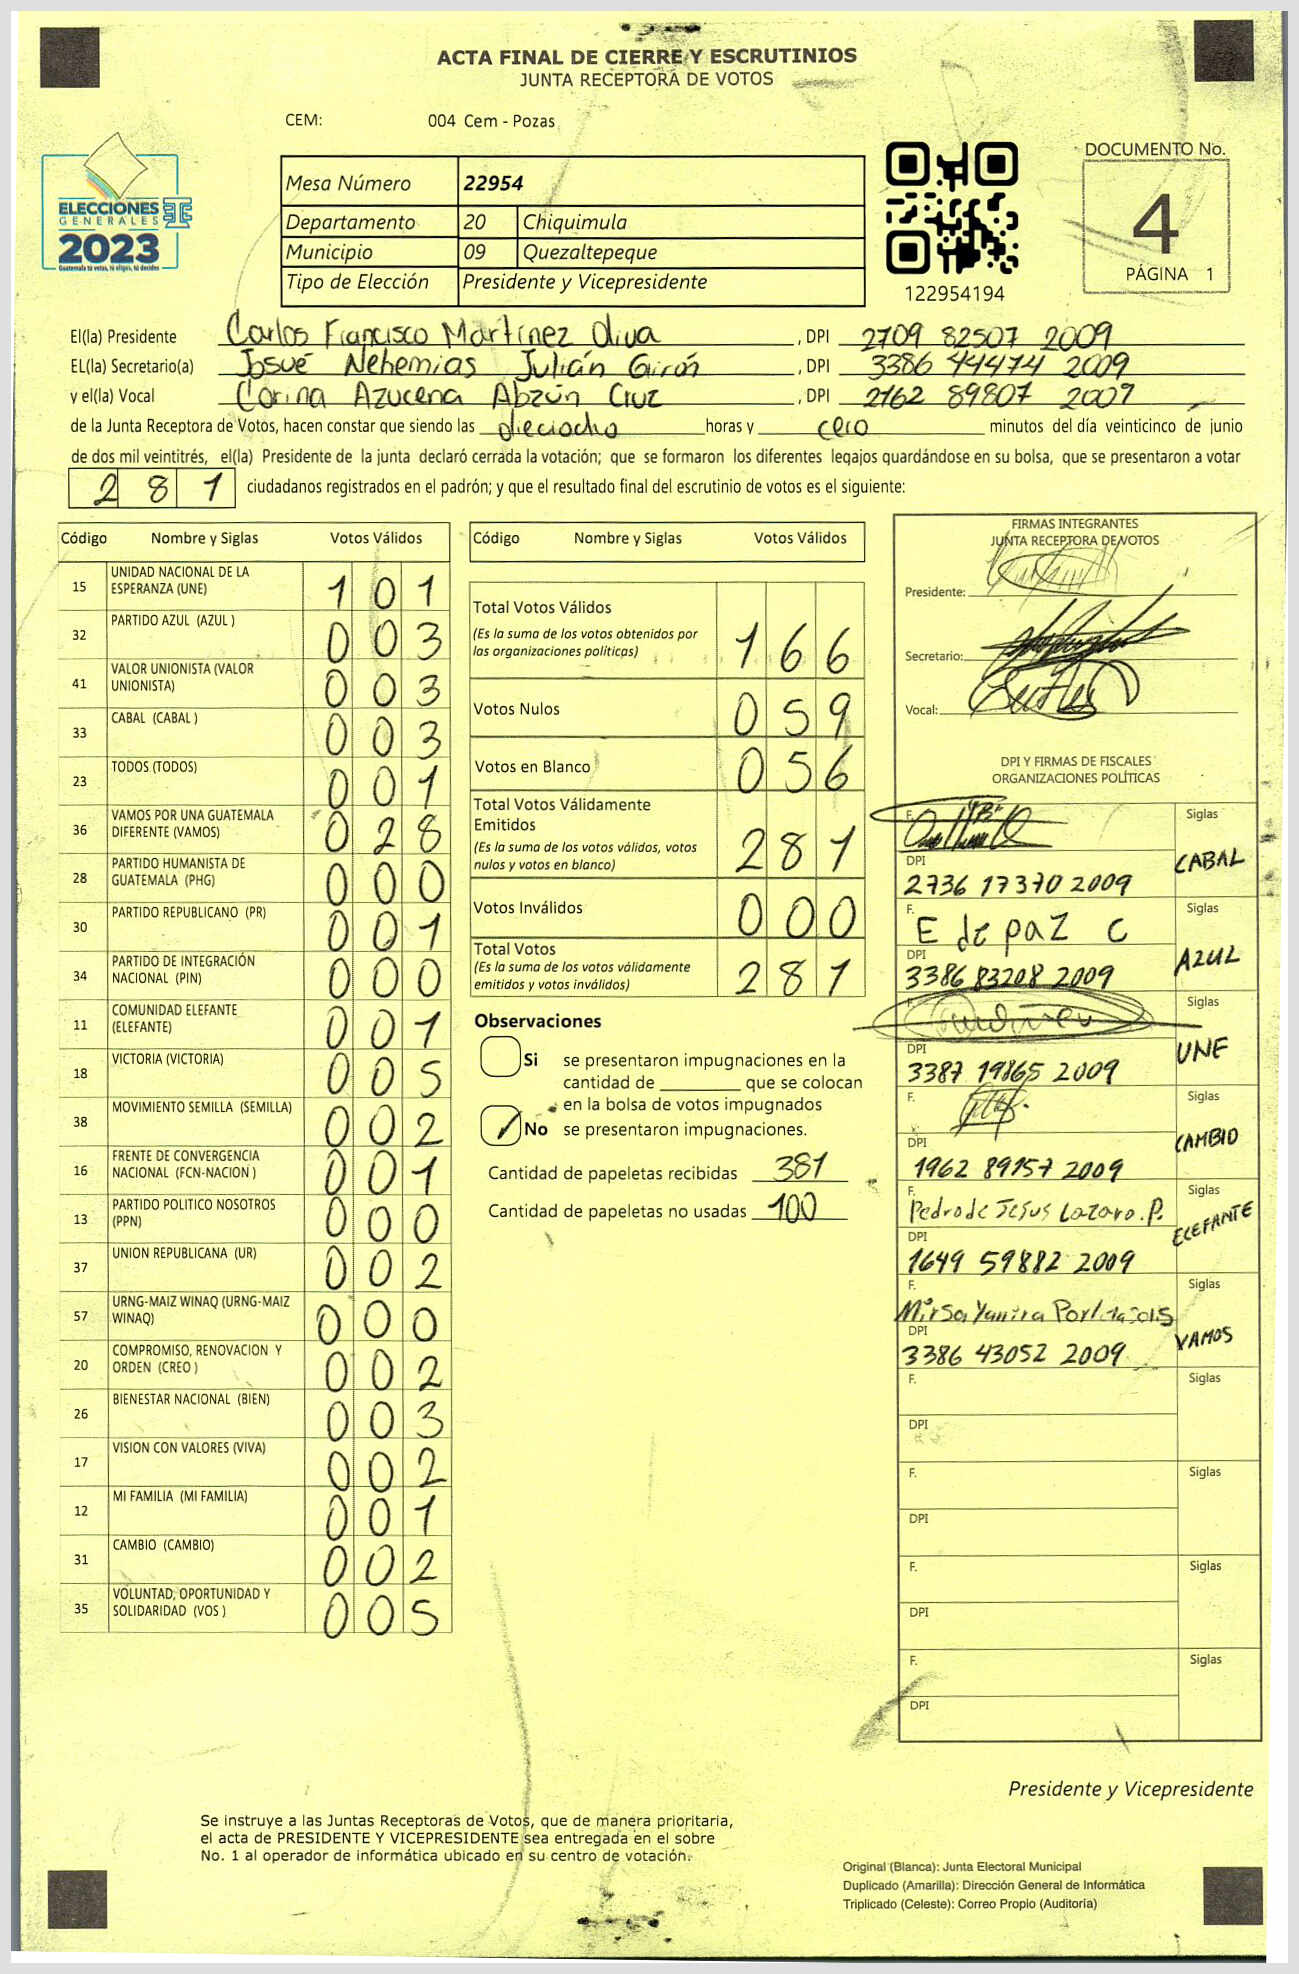 ACTA FINAL DE CIERRE Y ESCRUTINIOS
JUNTA RECEPTORA DE VOTOS
CEM: 004 Cem - Pozas
ELECCIONES
GENERALES
2023
Guatemala tú votas, tú eliges, tú decides
Mesa Número 22954
Departamento 20 Chiquimula
Municipio 09 Quezaltepeque
Tipo de Elección Presidente y Vicepresidente
122954194
DOCUMENTO No.
4
PÁGINA 1
El(la) Presidente Carlos Francisco Martínez Oliva, DPI 2709 82507 2009
EL(la) Secretario(a) Josué Nehemias Julián Girón, DPI 3386 44474 2009
y el(la) Vocal Corina Azucena Abzún Cruz, DPI 2162 89807 2007
de la Junta Receptora de Votos, hacen constar que siendo las dieciocho horas y cero minutos del día veinticinco de junio
de dos mil veintitrés, el(la) Presidente de la junta declaró cerrada la votación; que se formaron los diferentes legajos guardándose en su bolsa, que se presentaron a votar
281 ciudadanos registrados en el padrón; y que el resultado final del escrutinio de votos es el siguiente:
Código Nombre y Siglas Votos Válidos
15 UNIDAD NACIONAL DE LA ESPERANZA (UNE) 101
32 PARTIDO AZUL (AZUL ) 003
41 VALOR UNIONISTA (VALOR UNIONISTA) 003
33 CABAL (CABAL ) 003
23 TODOS (TODOS) 001
36 VAMOS POR UNA GUATEMALA DIFERENTE (VAMOS) 028
28 PARTIDO HUMANISTA DE GUATEMALA (PHG) 000
30 PARTIDO REPUBLICANO (PR) 001
34 PARTIDO DE INTEGRACIÓN NACIONAL (PIN) 000
11 COMUNIDAD ELEFANTE (ELEFANTE) 001
18 VICTORIA (VICTORIA) 005
38 MOVIMIENTO SEMILLA (SEMILLA) 002
16 FRENTE DE CONVERGENCIA NACIONAL (FCN-NACION ) 001
13 PARTIDO POLITICO NOSOTROS (PPN) 000
37 UNION REPUBLICANA (UR) 002
57 URNG-MAIZ WINAQ (URNG-MAIZ WINAQ) 000
20 COMPROMISO, RENOVACION Y ORDEN (CREO ) 002
26 BIENESTAR NACIONAL (BIEN) 003
17 VISION CON VALORES (VIVA) 002
12 MI FAMILIA (MI FAMILIA) 001
31 CAMBIO (CAMBIO) 002
35 VOLUNTAD, OPORTUNIDAD Y SOLIDARIDAD (VOS ) 005
Código Nombre y Siglas Votos Válidos
Total Votos Válidos 166
(Es la suma de los votos obtenidos por
las organizaciones políticas)
Votos Nulos 059
Votos en Blanco 056
Total Votos Válidamente
Emitidos 281
(Es la suma de los votos válidos, votos
nulos y votos en blanco)
Votos Inválidos 000
Total Votos 281
(Es la suma de los votos válidamente
emitidos y votos inválidos)
Observaciones
Si se presentaron impugnaciones en la
cantidad de ________ que se colocan
en la bolsa de votos impugnados
No se presentaron impugnaciones.
Cantidad de papeletas recibidas 381
Cantidad de papeletas no usadas 100
FIRMAS INTEGRANTES
JUNTA RECEPTORA DE VOTOS
Presidente:
Secretario:
Vocal:
DPI Y FIRMAS DE FISCALES
ORGANIZACIONES POLÍTICAS
F. Siglas
DPI CABAL
2736 17370 2009
F. E de paz C Siglas
DPI AZUL
3386 83208 2009
F. Siglas
DPI UNE
3387 19865 2009
F. Siglas
DPI CAMBIO
1962 89157 2009
F. Pedro de Jesus Lazaro. P. Siglas
DPI ELEFANTE
1649 59882 2009
F. Siglas
DPI VAMOS
3386 43052 2009
F. Siglas
DPI
F. Siglas
DPI
F. Siglas
DPI
F. Siglas
DPI
Presidente y Vicepresidente
Se instruye a las Juntas Receptoras de Votos, que de manera prioritaria,
el acta de PRESIDENTE Y VICEPRESIDENTE sea entregada en el sobre
No. 1 al operador de informática ubicado en su centro de votación.
Original (Blanca): Junta Electoral Municipal
Duplicado (Amarilla): Dirección General de Informática
Triplicado (Celeste): Correo Propio (Auditoría)